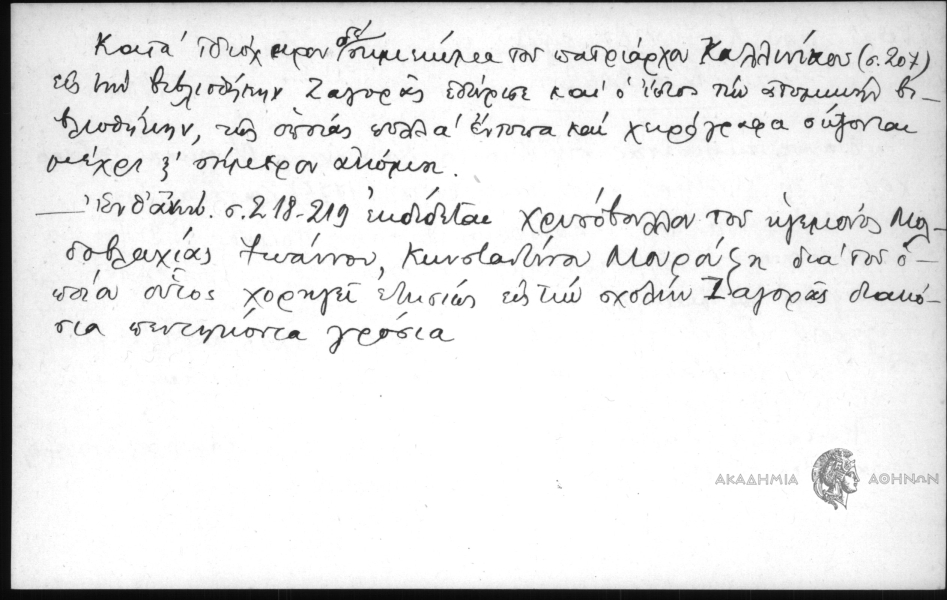 Κατὰ ἰδιόχειρον σημείωμα τοῦ πατριάρχου Καλλινίκου (σ. 207)
εἰς τὴν βιβλιοθήκην Ζαγορᾶς ἐδώρισε καὶ ὁ ἴδιος τὴν ἀτομικὴν βι-
βλιοθήκην, τῆς ὁποίας πολλὰ ἔντυπα καὶ χειρόγραφα σώζονται
μέχρι σήμερον ἀκόμη.
— Ἐνθ' ἀνωτ. σ. 218-219 ἐκδίδεται χρυσόβουλλον τοῦ ἡγεμόνος Μολ-
δοβλαχίας Ἰωάννου, Κωνσταντίνου Μουρούζη διὰ τοῦ ὁ-
ποίου οὗτος χορηγεῖ ἐτησίως εἰς τὴν σχολὴν Ζαγορᾶς διακό-
σια πεντήκοντα γρόσια
ΑΚΑΔΗΜΙΑ ΑΘΗΝΩΝ